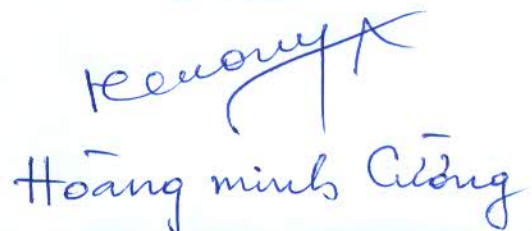 Hoàng minh Cường